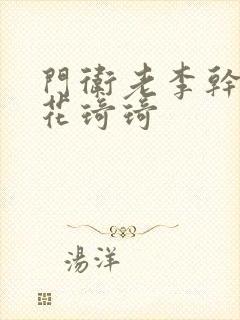 門衛老李幹
花琦琦
湯洋